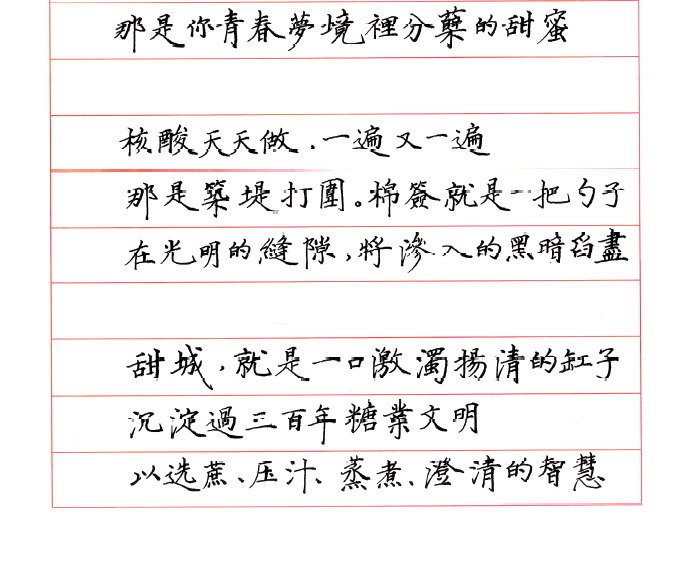 那是你青春夢境裡分蘖的甜蜜
核酸天天做.一遍又一遍
那是築堤打圍。棉簽就是一把勺子
在光明的縫隙,將滲入的黑暗舀盡
甜城,就是一口激濁揚清的缸子
沉淀過三百年糖業文明
以选蔗、压汁、蒸煮、澄清的智慧